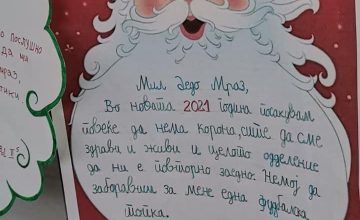 о послушно
да ми
Мил Дедо Мраз,
Во новата 2021 година посакувам
повеќе да нема корона, сите да сме
здрави и живи и целото одделение
да ни е повторно заедно. Немој да
заборавиш за мене една фудбалска
топка.